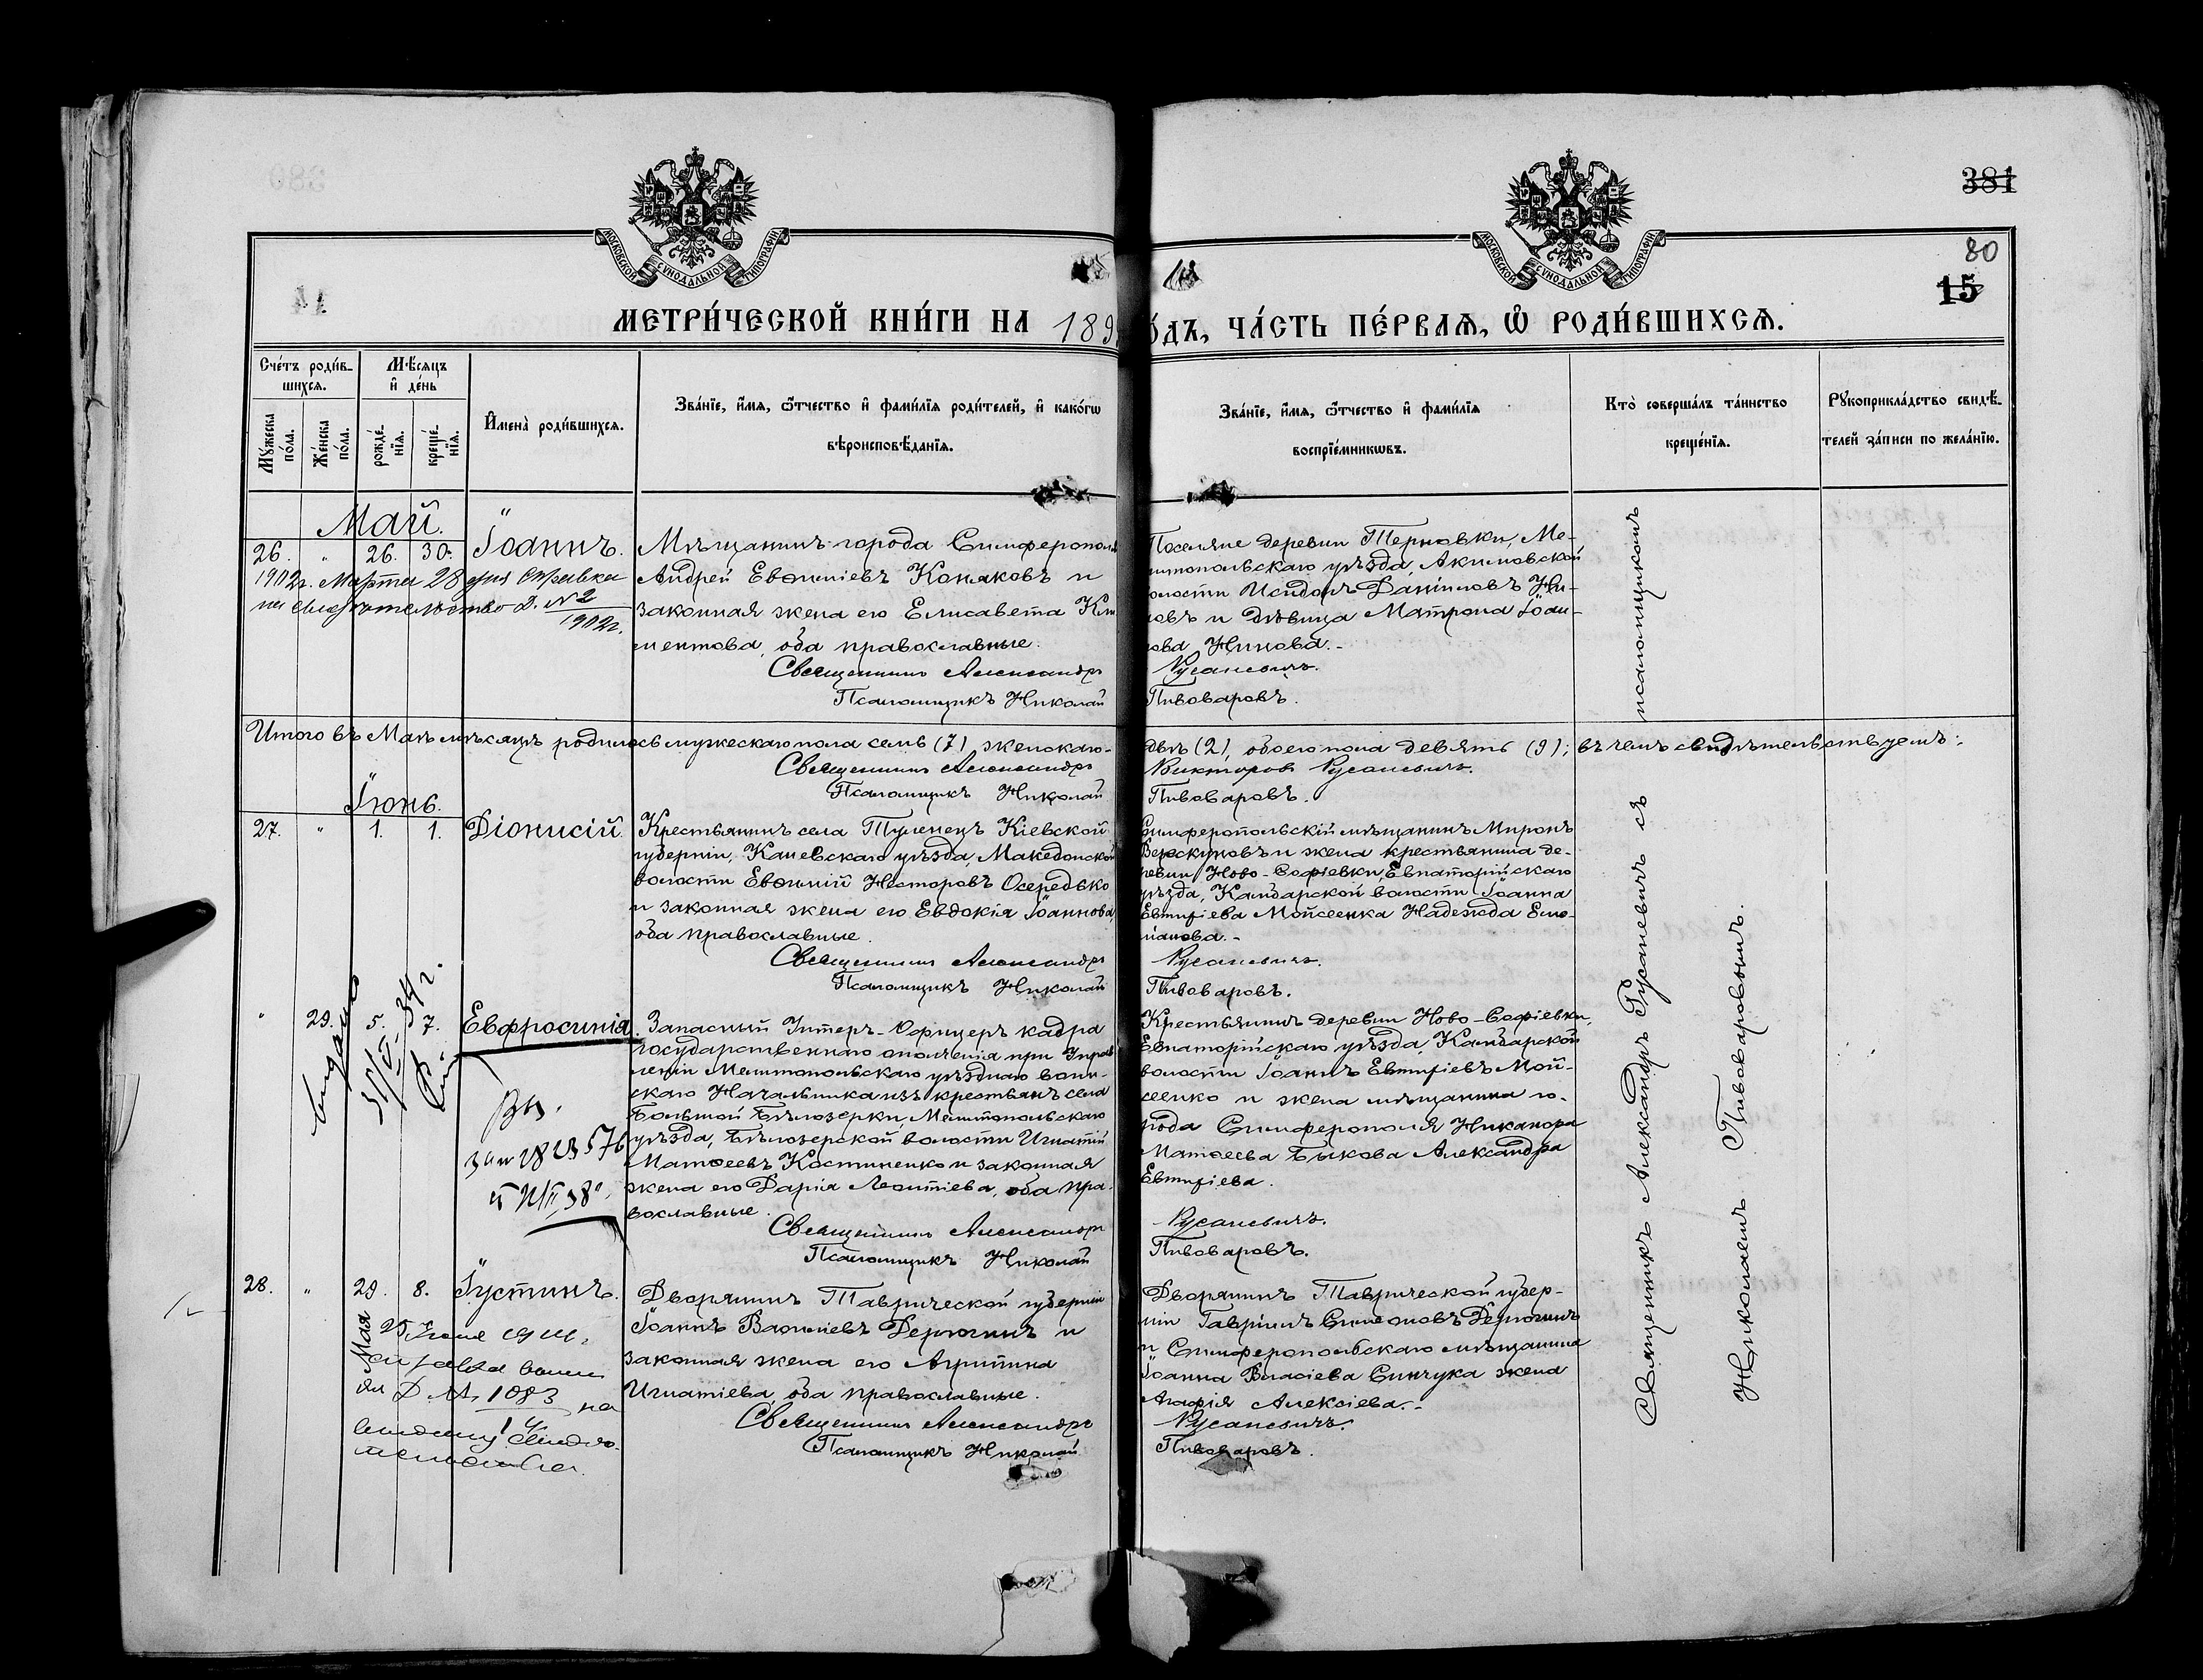 381
80
15
МОСКОВСКОЙ СѴНОДАЛЬНОЙ ТИПОГРАФІИ
МОСКОВСКОЙ СѴНОДАЛЬНОЙ ТИПОГРАФІИ
МЕТРИ́ЧЕСКОЙ КНИ́ГИ НА 189
ÓДЪ, ЧА́СТЬ ПЕ́РВАѦ, Ѽ РОДИ́ВШИХСѦ.
Сче́тъ роди́в-
шихсѧ.
Мꙋжеска по́ла.
Же́нска по́ла.
Мѣ́сѧцъ
и҆ де́нь
рожде́-
нїѧ.
креще́-
нїѧ.
И҆мена̀ роди́вшихсѧ.
Зва́нїе, и҆́мѧ, ѻ҆́тчество и҆ фами́лїѧ роди́телей, и҆ како́гѡ
вѣроисповѣ́данїѧ.
Зва́нїе, и҆́мѧ, ѻ҆́тчество и҆ фами́лїѧ
воспрїе́мникѡвъ.
Кто̀ соверша́лъ та́инство
креще́нїѧ.
Рꙋкоприкла́дство свидѣ́-
телей за́писи по жела́нїю.
Май.
26. " 26. 30. Іоаннъ.
1902г. Марта 28 дня справка
на свидѣтельство д. №2
1902г.
Мѣщанинъ города Симферополя
Андрей Евѳиміевъ Коняковъ и
законная жена его Елисавета Кли
ментова, оба православные.
Священникъ Александръ
Псаломщикъ Николай
Поселяне деревни Терновки, Ме-
литопольскаго уѣзда, Акимовской
волости Исидоръ Даніиловъ
и дѣвица Матрона Іоан-
нова
Русаневичъ.
Пивоваровъ.
Итого въ Маѣ мѣсяцѣ родилось мужескаго пола семь (7), женскаго-
двѣ (2), обоего пола девять (9); въ чемъ свидѣтельствуемъ:
Священникъ Александръ
Викторовъ Русаневичъ.
Псаломщикъ Николай
Пивоваровъ.
Іюнь.
27. " 1. 1. Діонисій.
Крестьянинъ села Тулинецъ Кіевской
губерніи, Каневскаго уѣзда, Македонской
волости Евѳимій Несторовъ Осередько
и законная жена его Евдокія Іоаннова,
оба православные.
Священникъ Александръ
Псаломщикъ Николай
Симферопольскій мѣщанинъ Миронъ
и жена крестьянина де-
ревни Ново-Софіевки, Евпаторійскаго
уѣзда, Камбарской волости Іоанна
Евтихіева Мойсеенка Надежда
Русаневичъ.
Пивоваровъ.
" 29. 5. 7. Евфросинія.
Выдано
Запасный Унтеръ-Офицеръ кадра
государственнаго ополченія при Управ
леніи Мелитопольскаго уѣзднаго воин-
скаго Начальника изъ крестьянъ села
Большой Бѣлозерки, Мелитопольскаго
уѣзда, Бѣлозерской волости Игнатій
Матѳеевъ Костиненко и законная
жена его Дарія Леонтіева, оба пра-
вославные.
Священникъ Александръ
Псаломщикъ Николай
Крестьянинъ деревни Ново-Софіевки,
Евпаторійскаго уѣзда, Камбарской
волости Іоаннъ Евтихіевъ Мой-
сеенко и жена мѣщанина го-
рода Симферополя Никанора
Матѳеева Быкова Александра
Евтихіева.
Русаневичъ.
Пивоваровъ.
28. " 29. 8. Іустинъ.
Мая
Дворянинъ Таврической губерніи
Іоаннъ Василіевъ Дерюгинъ и
законная жена его Агриппина
Игнатіева, оба православные.
Священникъ Александръ
Псаломщикъ Николай
Дворянинъ Таврической губер-
ніи Гавріилъ Симеоновъ Дерюгинъ
и Симферопольскаго мѣщанина
Іоанна Власіева Синчука жена
Агафія Алексіева.-
Русаневичъ.
Пивоваровъ.
Священникъ Александръ Русаневичъ съ псаломщикомъ
Николаемъ Пивоваровымъ.